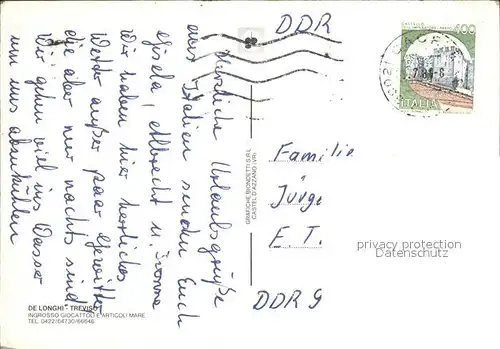 Herzliche Urlaubsgrüße
aus Italien senden Euch
Gisela, Albrecht u. Ivonne
Wir haben hier herrliches
Wetter außer paar Gewitter
die aber nur nachts sind
Wir gehen viel ins Wasser
um uns abzukühlen
DE LONGHI - TREVISO
INGROSSO GIOCATTOLI E ARTICOLI MARE
TEL. 0422/64730/66946
GRAFICHE BIONDETTI S.R.L.
CASTEL D'AZZANO (VR)
DDR
CASTELLO
400
ITALIA
Familie
Jürge
E. T.
DDR 9
privacy protection
Datenschutz